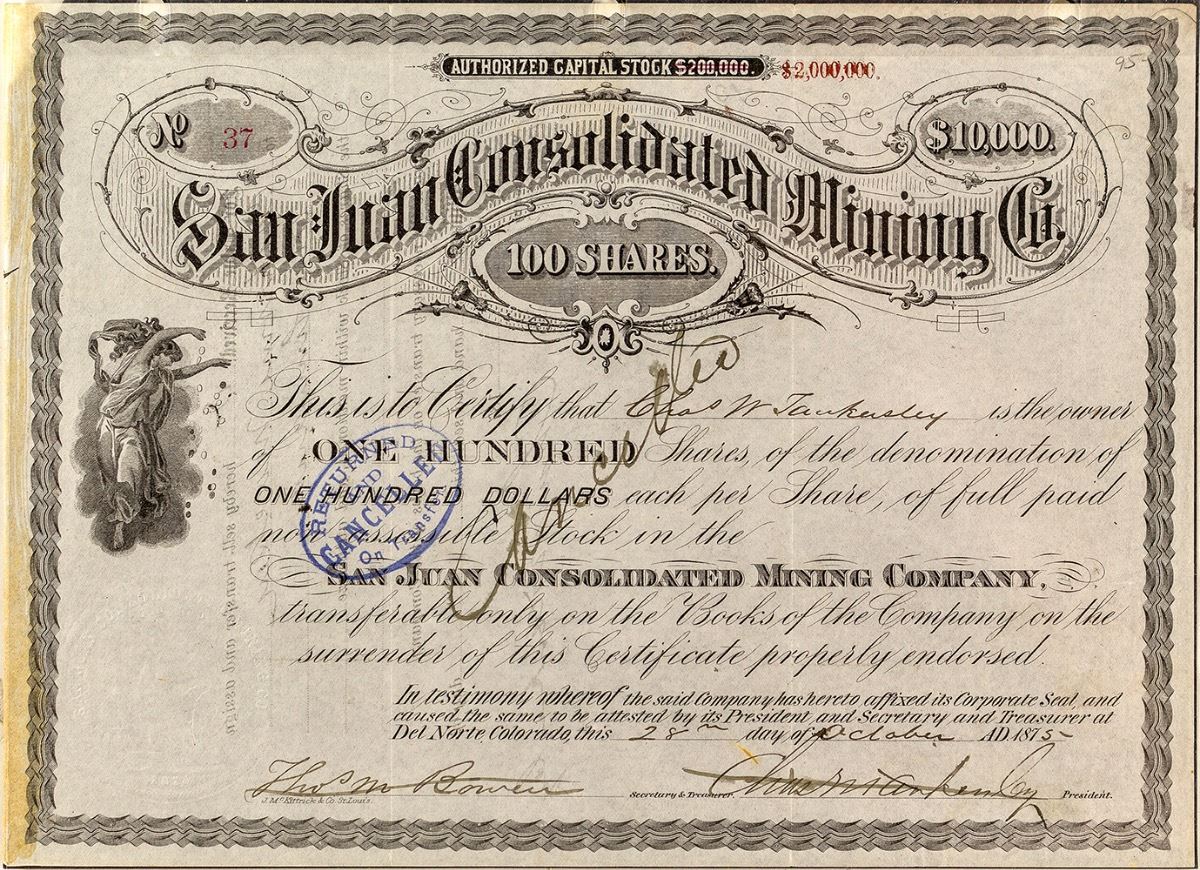 AUTHORIZED CAPITAL STOCK $200,000. $2,000,000.
95-
No 37
$10,000.
San Juan Consolidated Mining Co.
100 SHARES.
This is to Certify, that Chas W Tankersley is the owner
of ONE HUNDRED Shares, of the denomination of
ONE HUNDRED DOLLARS each per Share, of full paid
non assessible Stock in the
SAN JUAN CONSOLIDATED MINING COMPANY,
transferable only on the Books of the Company on the
surrender of this Certificate properly endorsed.
Cancelled
RETURNED
AND
CANCELLED
On Transfer
In testimony whereof the said Company has hereto affixed its Corporate Seal, and
caused the same to be attested by its President and Secretary and Treasurer at
Del Norte, Colorado, this 28th day of October AD 1875-
Thos M Bowen Secretary & Treasurer. Chas W Tankersley President.
J. McKittrick & Co. St. Louis.